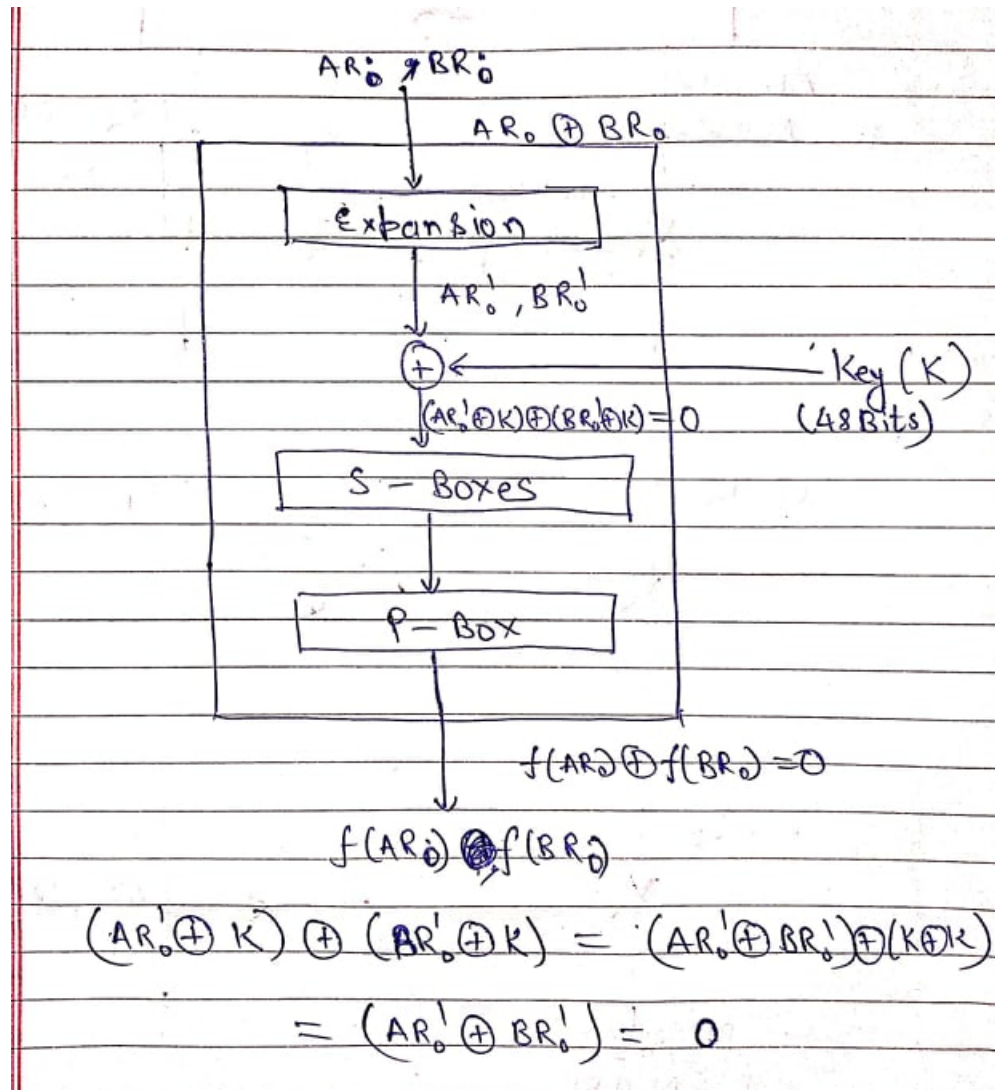 AR₀ , BR₀
AR₀ ⊕ BR₀
Expansion
AR₀' , BR₀'
+
Key (K)
(48 Bits)
(AR₀'⊕K)⊕(BR₀'⊕K)=0
S - Boxes
P - Box
f(AR₀)⊕f(BR₀)=0
f(AR₀) , f(BR₀)
(AR₀'⊕ K) ⊕ (BR₀'⊕K) = (AR₀'⊕BR₀')⊕(K⊕K)
= (AR₀'⊕BR₀') = 0